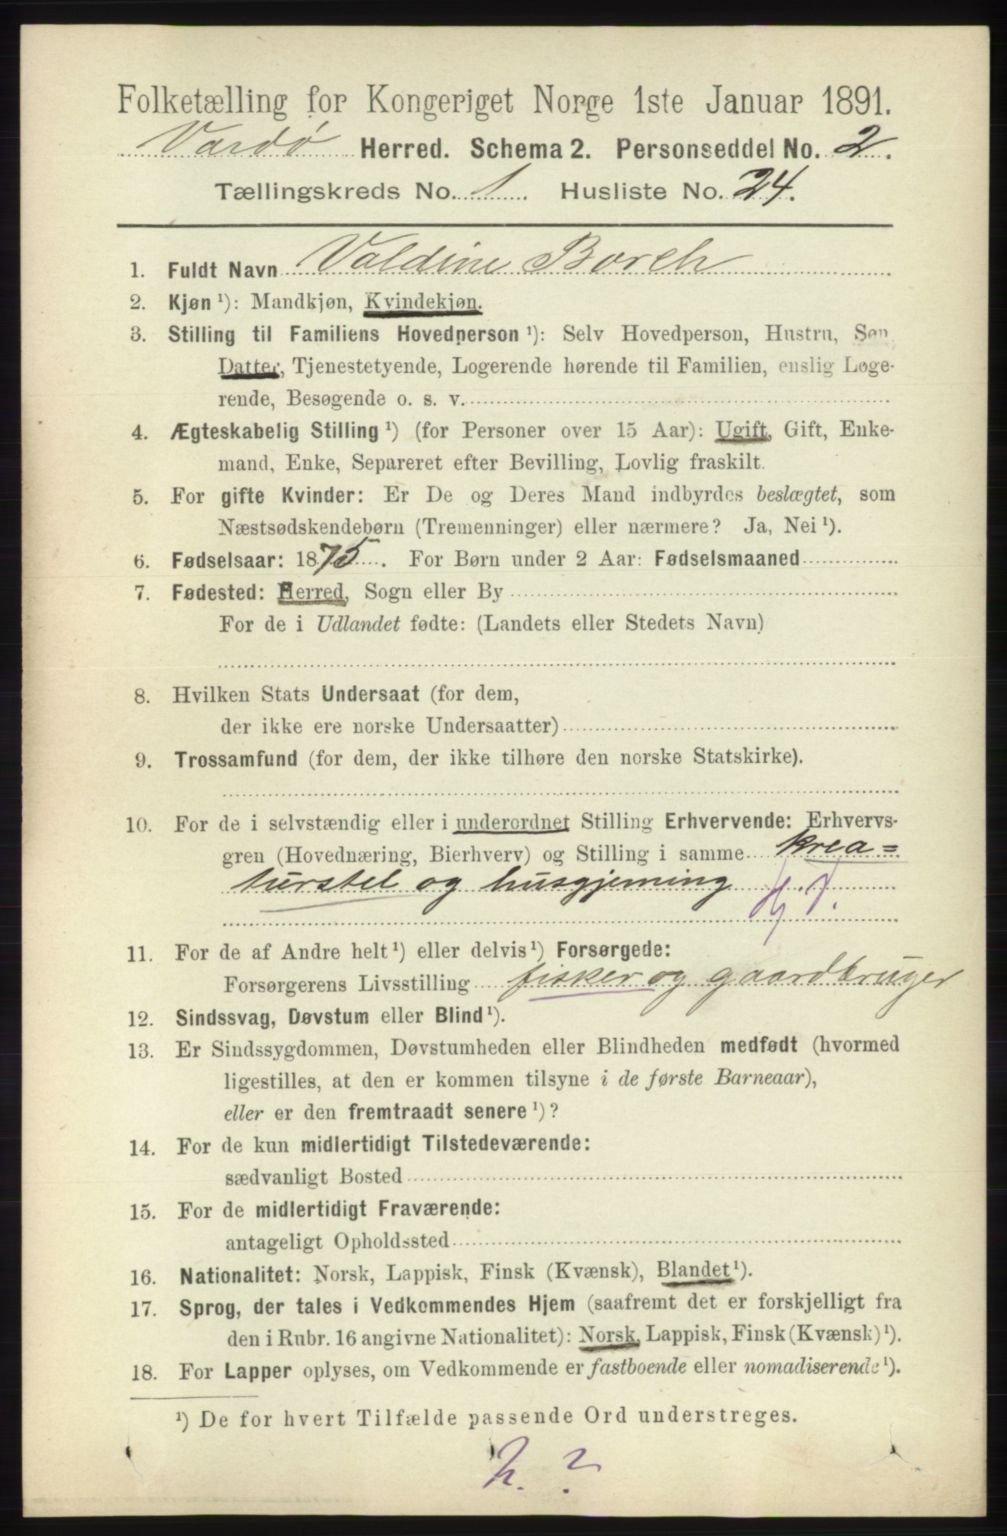 Folketælling for Kongeriget Norge 1ste Januar 1891.
Vardø Herred. Schema 2. Personseddel No. 2.
Tællingskreds No. 1 Husliste No. 24.
1. Fuldt Navn Valdine Borch
2. Kjøn ¹): Mandkjøn, Kvindekjøn.
3. Stilling til Familiens Hovedperson ¹): Selv Hovedperson, Hustru, Søn
Datter, Tjenestetyende, Logerende hørende til Familien, enslig Loge-
rende, Besøgende o. s. v.
4. Ægteskabelig Stilling ¹) (for Personer over 15 Aar): Ugift, Gift, Enke-
mand, Enke, Separeret efter Bevilling, Lovlig fraskilt.
5. For gifte Kvinder: Er De og Deres Mand indbyrdes beslægtet, som
Næstsødskendebørn (Tremenninger) eller nærmere? Ja, Nei ¹).
6. Fødselsaar: 1875. For Børn under 2 Aar: Fødselsmaaned
7. Fødested: Herred, Sogn eller By
For de i Udlandet fødte: (Landets eller Stedets Navn)
8. Hvilken Stats Undersaat (for dem,
der ikke ere norske Undersaatter)
9. Trossamfund (for dem, der ikke tilhøre den norske Statskirke).
10. For de i selvstændig eller i underordnet Stilling Erhvervende: Erhvervs-
gren (Hovednæring, Bierhverv) og Stilling i samme krea=
turstel og husgjerning
11. For de af Andre helt ¹) eller delvis ¹) Forsørgede:
Forsørgerens Livsstilling fisker og gaardbruger
12. Sindssvag, Døvstum eller Blind ¹).
13. Er Sindssygdommen, Døvstumheden eller Blindheden medfødt (hvormed
ligestilles, at den er kommen tilsyne i de første Barneaar),
eller er den fremtraadt senere ¹)?
14. For de kun midlertidigt Tilstedeværende:
sædvanligt Bosted
15. For de midlertidigt Fraværende:
antageligt Opholdssted
16. Nationalitet: Norsk, Lappisk, Finsk (Kvænsk), Blandet ¹).
17. Sprog, der tales i Vedkommendes Hjem (saafremt det er forskjelligt fra
den i Rubr. 16 angivne Nationalitet): Norsk, Lappisk, Finsk (Kvænsk) ¹).
18. For Lapper oplyses, om Vedkommende er fastboende eller nomadiserende ¹).
¹) De for hvert Tilfælde passende Ord understreges.